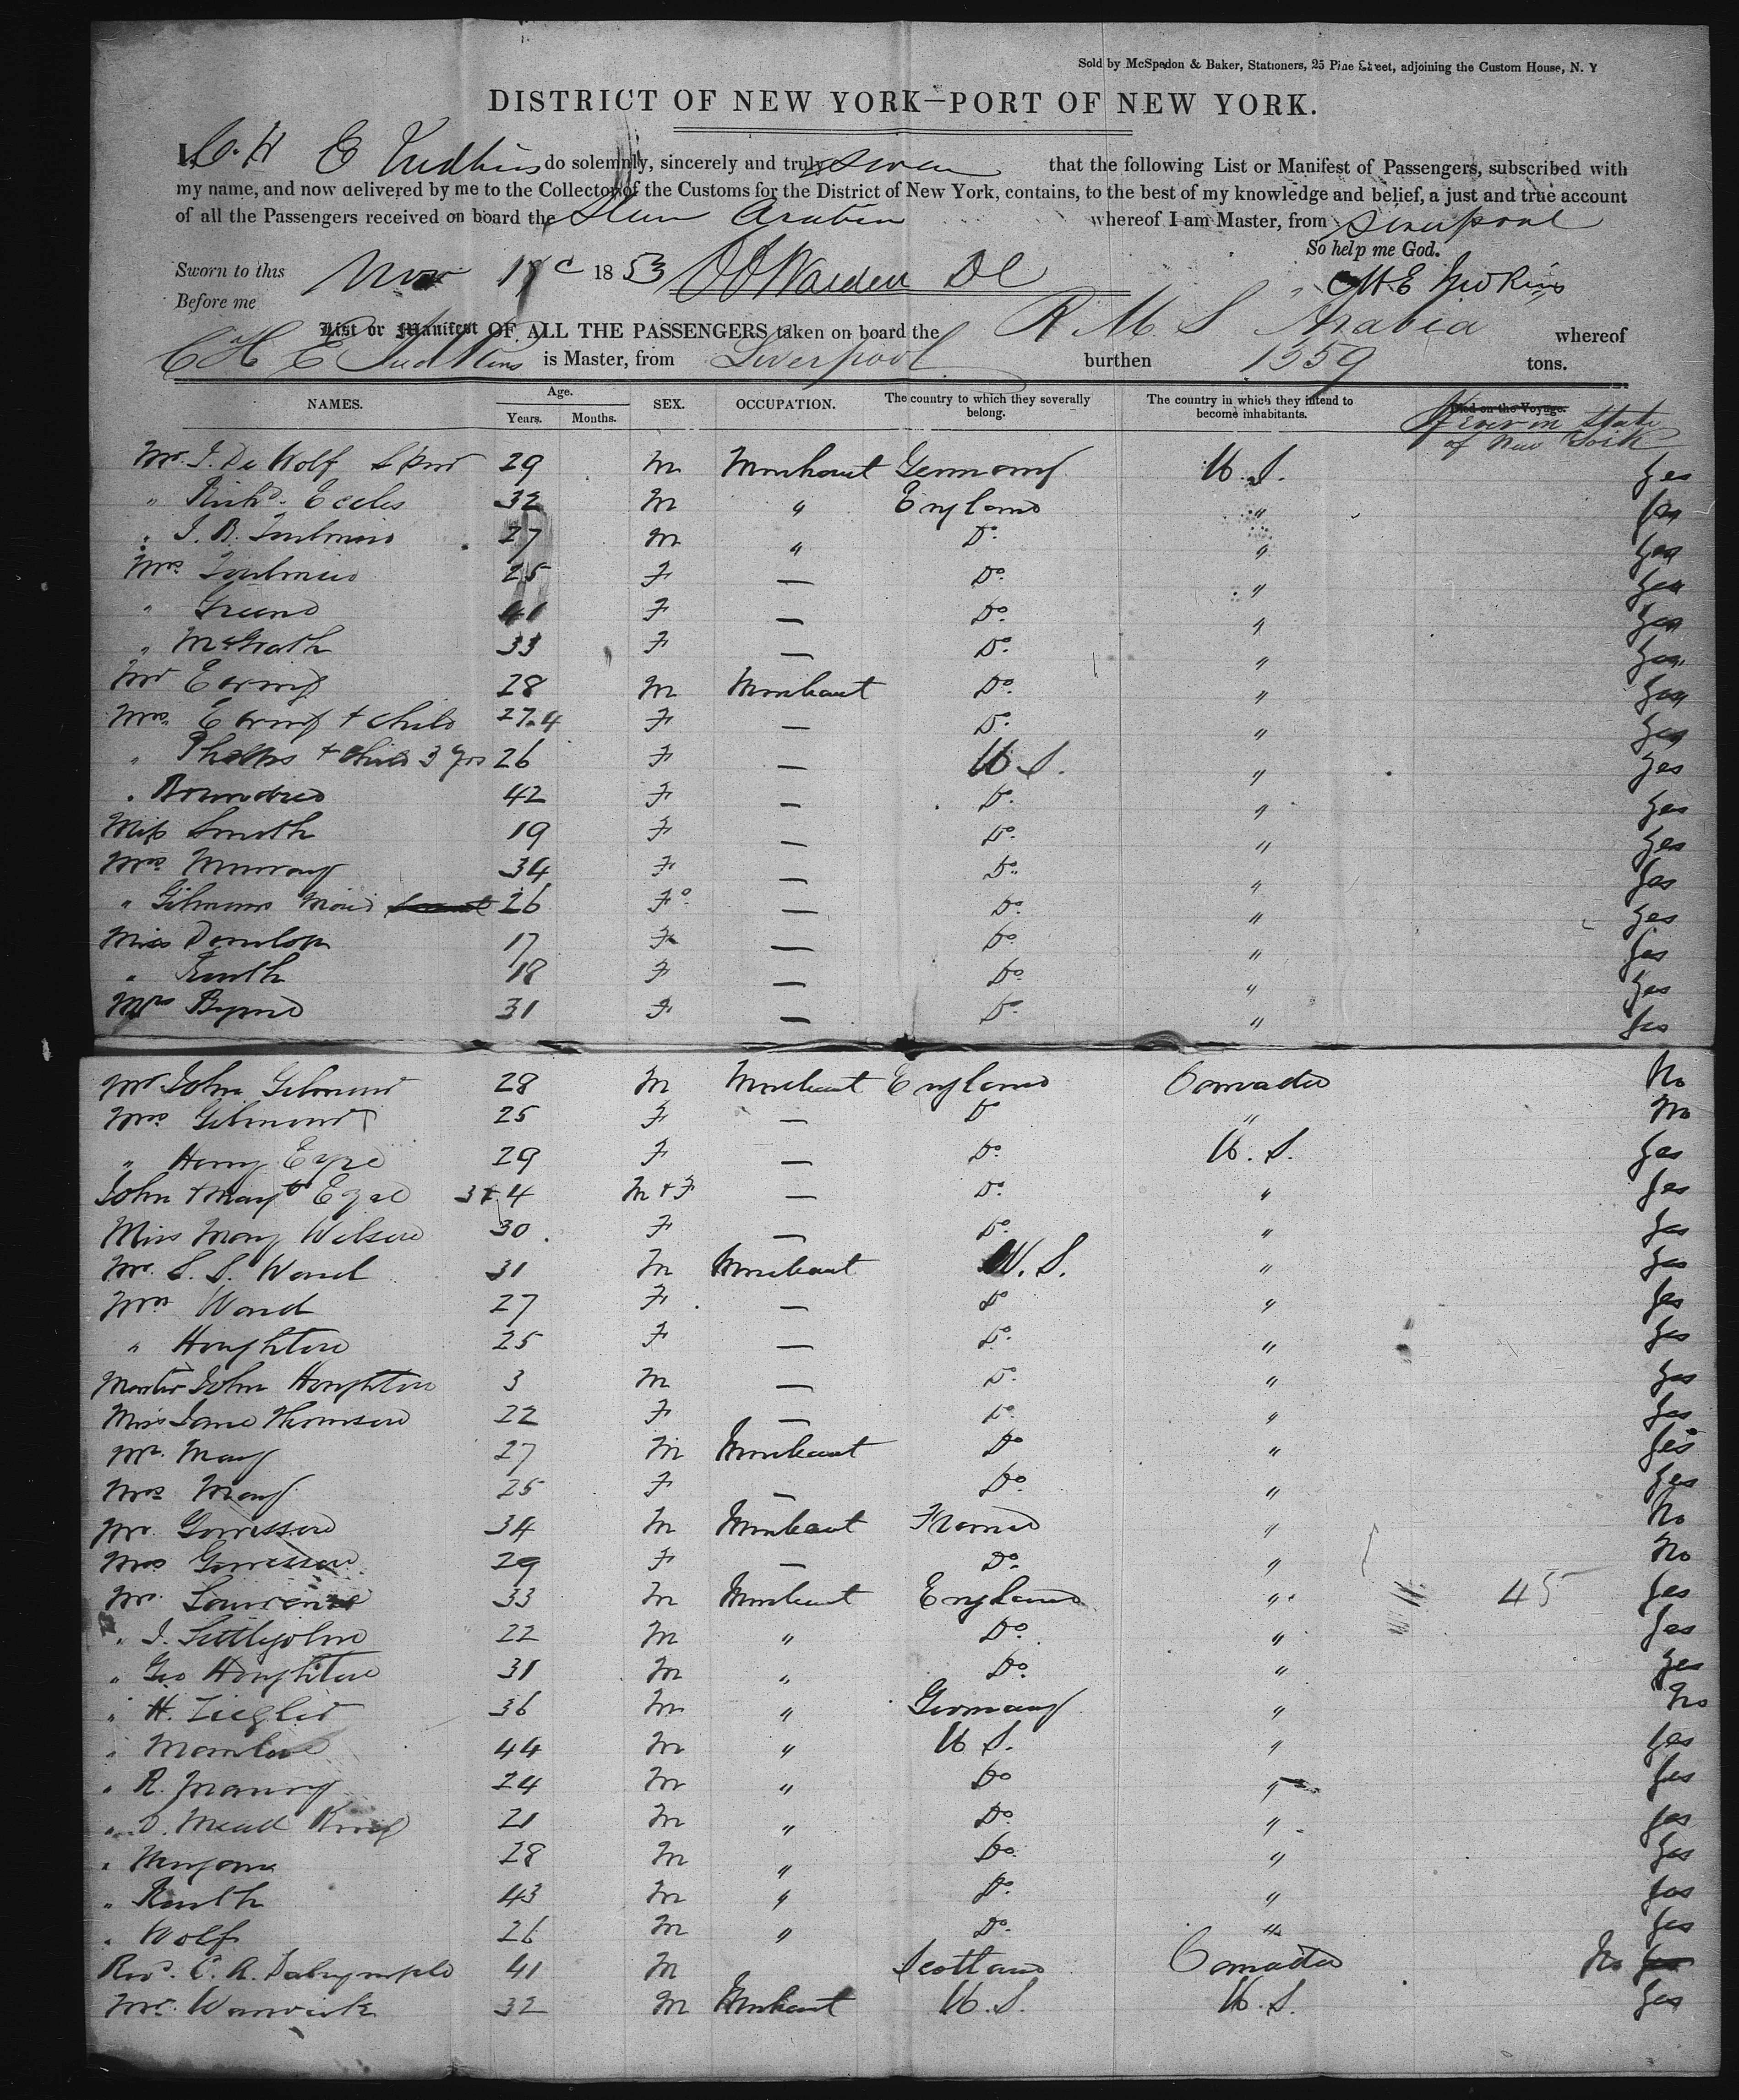 Sold by McSpedon & Baker, Stationers, 25 Pine Street, adjoining the Custom House, N. Y
DISTRICT OF NEW YORK—PORT OF NEW YORK.
I, C. H E Judkins do solemnly, sincerely and truly swear that the following List or Manifest of Passengers, subscribed with
my name, and now delivered by me to the Collector of the Customs for the District of New York, contains, to the best of my knowledge and belief, a just and true account
of all the Passengers received on board the Steam Arabia whereof I am Master, from Liverpool
So help me God.
Sworn to this Nov 1853 Warden DC CHE Judkins
Before me
List or Manifest OF ALL THE PASSENGERS taken on board the R M S Arabia whereof
C H E Judkins is Master, from Liverpool burthen 1359 tons.
NAMES. Age. Years. Months. SEX. OCCUPATION. The country to which they severally belong. The country in which they intend to become inhabitants. Died on the Voyage.
If ever in State
of New York
Mr. J. De Wolf 29 M Merchant Germany U. S. Yes
" Richd. Eccles 32 M " England " Yes
" J. B. Toulmin 27 M " Do. " Yes
Mrs. Toulmin 25 F — Do. " Yes
" Greene 41 F — Do. " Yes
" McGrath 33 F — Do. " Yes
Mr Ewing 28 M Merchant Do. " Yes
Mrs. Ewing + child 27.4 F — Do. " Yes
" Phelps + child 3 yrs 26 F — U. S. " Yes
" 42 F — Do. " Yes
Miss Smith 19 F — Do. " Yes
Mrs. Murray 34 F — Do. " Yes
" Gilmours Maid 26 F — Do. " Yes
Miss Donilson 17 F — Do. " Yes
" Routh 18 F — Do. " Yes
Mrs Byrne 31 F — Do. " Yes
Mr John Gilmour 28 M Merchant England Canada No
Mrs. Gilmour 25 F — Do " No
" Henry Eyre 29 F — Do. U. S. Yes
John + Mary Eyre 3 + 4 M + F — Do. " Yes
Miss Mary Wilson 30 F — Do. " Yes
Mr. S. S. Ward 31 M Merchant U. S. " Yes
Mrs Ward 27 F — Do " Yes
" Houghton 25 F — Do. " Yes
Master John Houghton 3 M — Do. " Yes
Miss Jane Thomson 22 F — Do. " Yes
Mr. May 27 M Merchant Do " Yes
Mrs May 25 F — Do. " Yes
Mr. Gorrissen 34 M Merchant France " No
Mrs Gorrissen 29 F — Do. " No
Mr. Lawrence 33 M Merchant England " 45 Yes
" J. Littlejohn 22 M " Do. " Yes
" Geo Houghton 31 M " Do. " Yes
" H. Ziegler 36 M " Germany " No
" 44 M " U S. " Yes
" R. 24 M " Do " Yes
" D. Mead King 21 M " Do. " Yes
" 28 M " Do. " Yes
" Routh 43 M " Do. " Yes
" Wolf 26 M " Do. " Yes
Revd. E. A. Dalrymple 41 M Scotland Canada No Yes
Mr. Warwick 32 M Merchant U. S. U. S. Yes